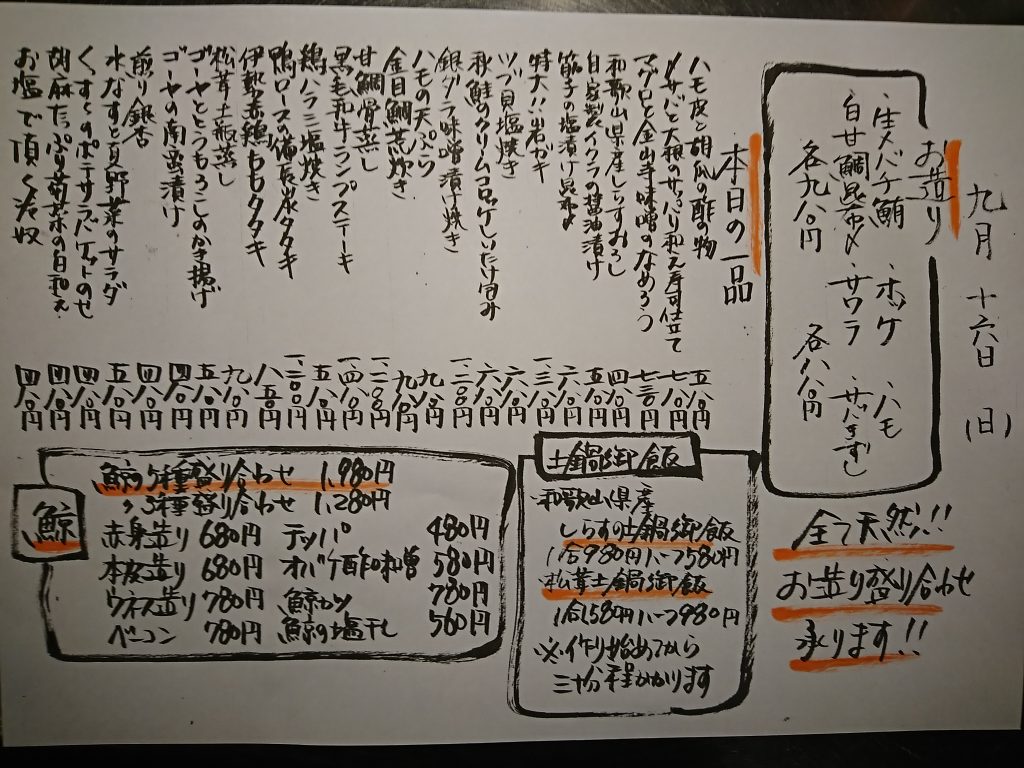 九月 十六日 (日)
お造り
・生メバチ鮪 ・ホッケ ・ハモ
・白甘鯛昆布〆 ・サワラ ・サバきずし
各九八〇円 各八八〇円
全て天然!!
お造り盛り合わせ
承ります!!
本日の一品
ハモ皮と胡瓜の酢の物 五八〇円
〆サバと大根のサッパリ和え寿司仕立て 七八〇円
マグロと金山寺味噌のなめろう 七三〇円
和歌山県産しらすおろし 四八〇円
自家製イクラの醤油漬け 五八〇円
筋子の塩漬け昆布〆 六八〇円
特大!!岩ガキ 一、三八〇円
ツブ貝塩焼き 六八〇円
秋鮭のクリームコロッケしいたけ包み 六八〇円
銀ダラ味噌漬け焼き 一、二〇〇円
ハモの天ぷら 九八〇円
金目鯛荒炊き 九八〇円
甘鯛骨蒸し 一、二〇〇円
黒毛和牛ランプステーキ 一、四八〇円
鶏ハラミ塩焼き 五八〇円
鴨ロースの備長炭タタキ 一、三〇〇円
伊勢赤鶏ももタタキ 八五〇円
松茸土瓶蒸し 九八〇円
ゴーヤととうもろこしのかき揚げ 五八〇円
ゴーヤの南蛮漬け 四八〇円
煎り銀杏 四八〇円
水なすと夏野菜のサラダ 五八〇円
ポテサラバケットのせ 四八〇円
胡麻たっぷり菊菜の白和え 四八〇円
お塩で頂く冷奴 四八〇円
土鍋御飯
和歌山県産
しらすの土鍋御飯
1合980円ハーフ580円
松茸土鍋御飯
1合1,580円ハーフ980円
※作り始めてから
三十分程かかります
鯨
鯨5種盛り合わせ 1,980円
〃3種盛り合わせ 1,280円
赤身造り 680円 テッパ 480円
本皮造り 680円 オバケ酢味噌 580円
ウネス造り 780円 鯨カツ 780円
ベーコン 780円 鯨の塩干し 560円